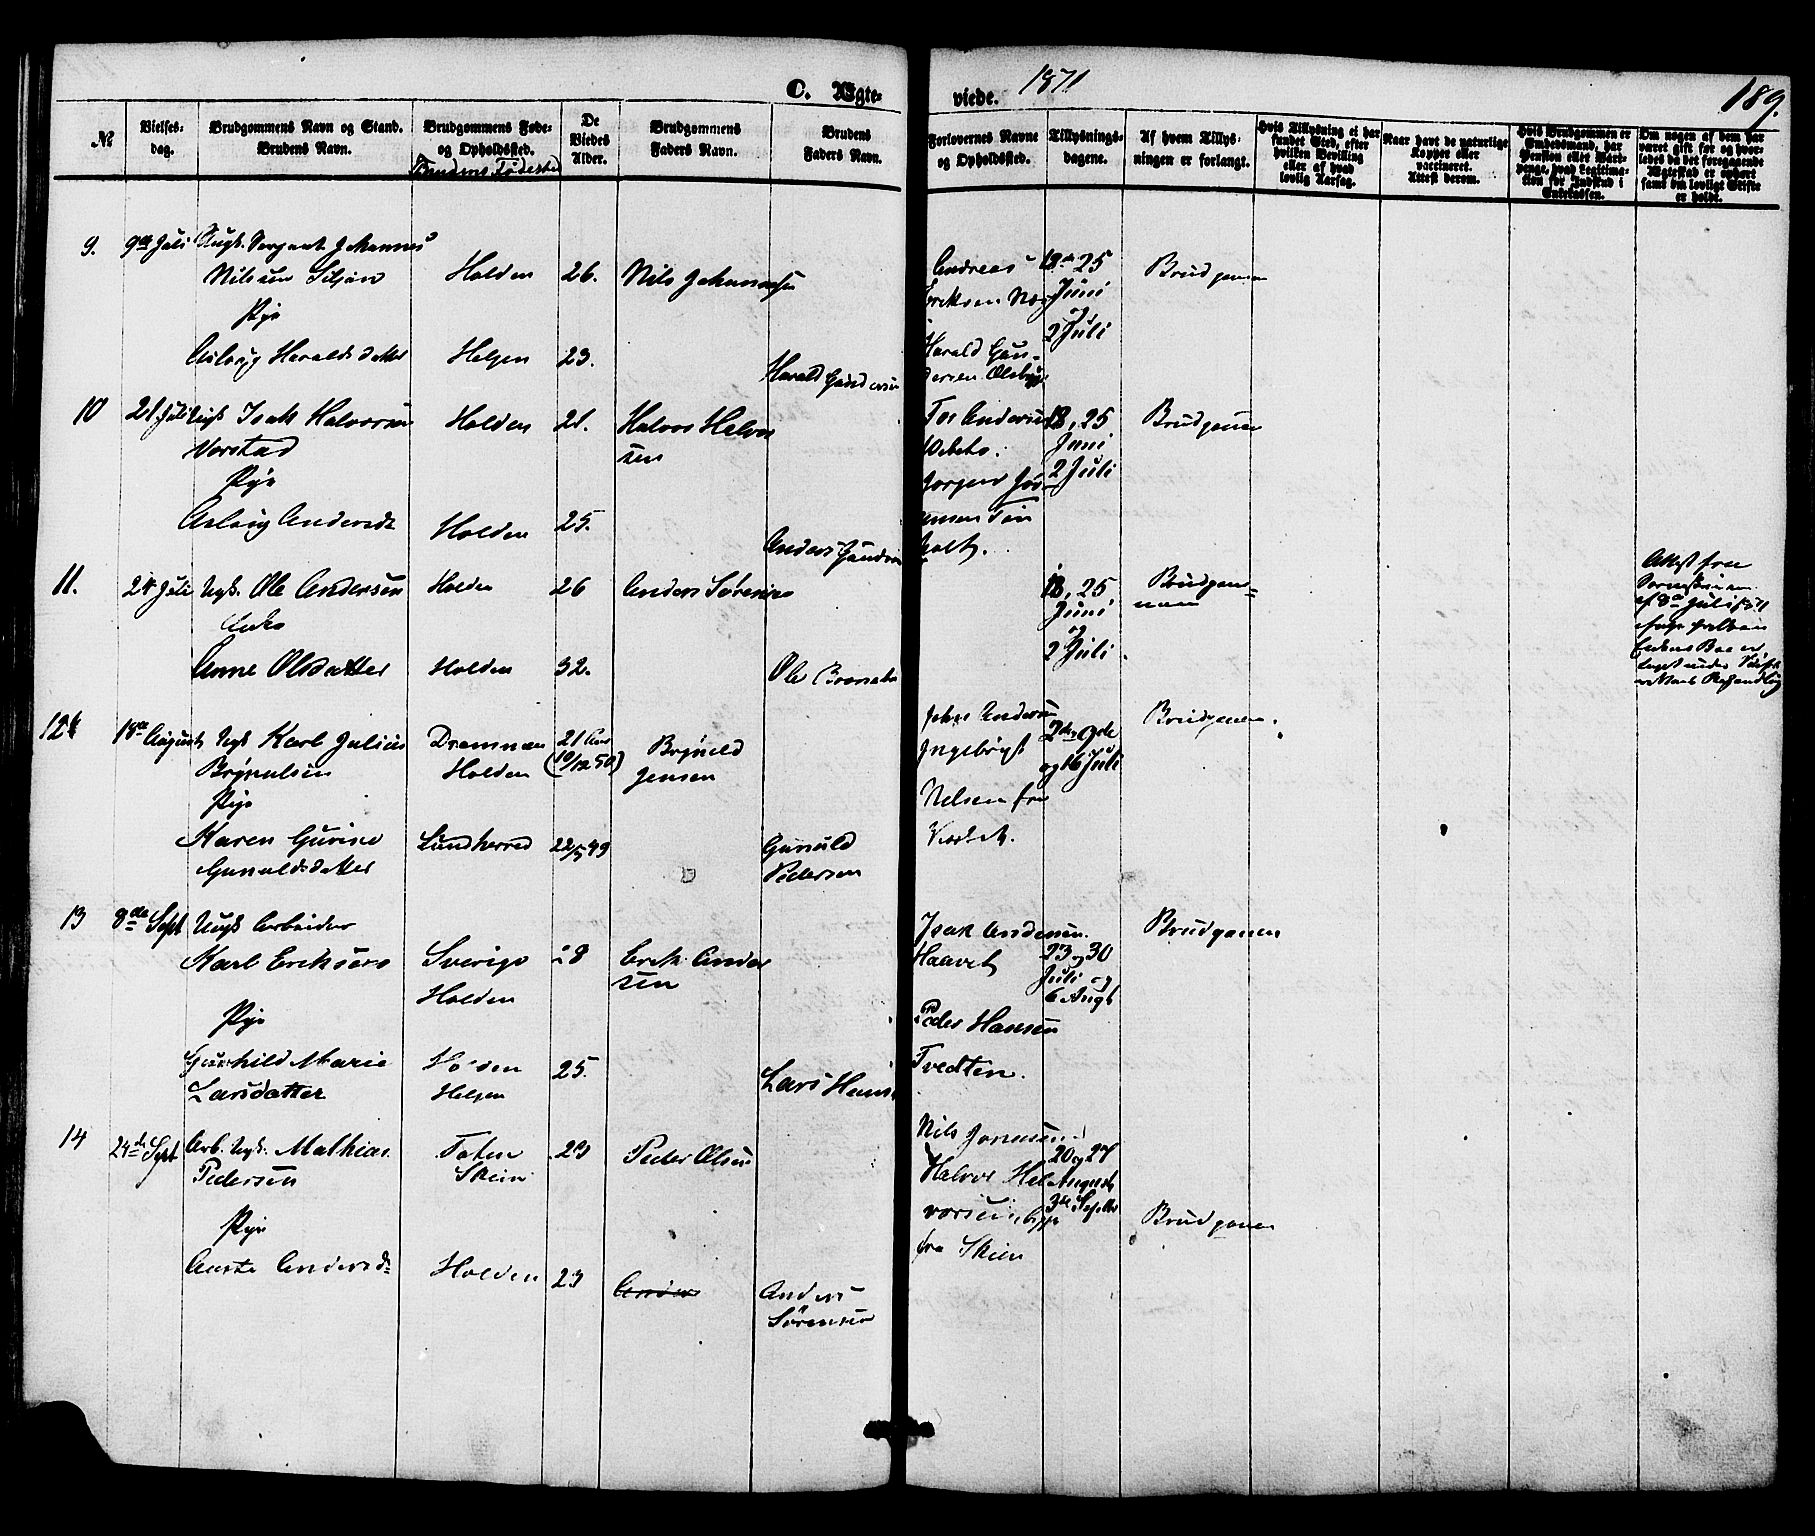 C. Ægte-
viede.
1871
189.
№
Vielses-
dag.
Brudgommens Navn og Stand.
Brudens Navn.
Brudgommens Føde-
og Opholdssted.
Brudens Fødested
De
Viedes
Alder.
Brudgommens
Faders Navn.
Brudens
Faders Navn.
Forlovernes Navne
og Opholdssted.
Tillysnings-
dagene.
Af hvem Tillys-
ningen er forlangt.
Hvis Tillysning ei har
fundet Sted, efter
hvilken Bevilling
eller af hvad
lovlig Aarsag.
Naar havt de naturlige
Kopper eller
vaccineret.
Attest derom.
Hvis Brudgommen er
Embedsmand, har
Pension eller Vart-
penge, hvad Legitima-
tion for Indskud i
Enkekassen.
Om nogen af dem har
været gift før og hvor-
ledes da det foregaaende
Ægteskab er ophørt
samt om lovligt Skifte
er holdt.
9.
9de Juli
Ungk. Sergeant Johannes
Nilssen Siljan
Pige
Aslaug Haraldsdatter
Holden
Helgen
26.
23.
Nils Johannessen
Harald Gundersen
Andreas
Eriksen
Harald Gun-
dersen
18de 25
Juni
og
2 Juli
Brudgommen
10
21 Juli
Ungk Isak Halvorsen
Vorstad
Pige
Aslaug Andersdt
Holden
Holden
21.
25.
Halvor Halvor
sen
Anders
Tor Andersen
Jørgen
18, 25
Juni
2 Juli
Brudgommen
11.
24 Juli
Ungk. Ole Andersen
Enke
Anne Olsdatter
Holden
Holden
26
32.
Anders Sørensen
Ole
18, 25
Juni
og
2 Juli.
Brudgom-
men
Attest fra
af 8de Juli 1871
12
18de August
Ungk Karl Julius
Brynulsen
Pige
Karen Gurine
Gunuldsdatter
Drammen
Holden
Lundherred
21 Aar
(10/12 50)
22/5 49
Brynuld
Jensen
Gunuld
Pedersen
John Andersen
Ingebrigt
Nelsen fra
2de 9de
og 16 Juli
Brudgommen.
13
8de Sept
Ungk Arbeider
Karl Eriksen
Pige
Gunhild Marie
Larsdatter
Sverige
Holden
Holden
Helgen
28
25.
Erik Ander
sen
Lars Hans
Isak Andersen.
Haavet
Peder Hansen
Tvedten.
23 og 30
Juli og
6 Augt
Brudgommen
14
24de Sept
Arb. Ungk. Mathias
Pedersen
Pige
Aaste Andersd:
Toten
Skien
Holden
23
23
Peder Olsen
Anders
Anders
Sørensen
Nils Jonassen
Halvor Hal
vorsen begge
fra Skien
20 og 27
August
3de Septbr
Brudgommen